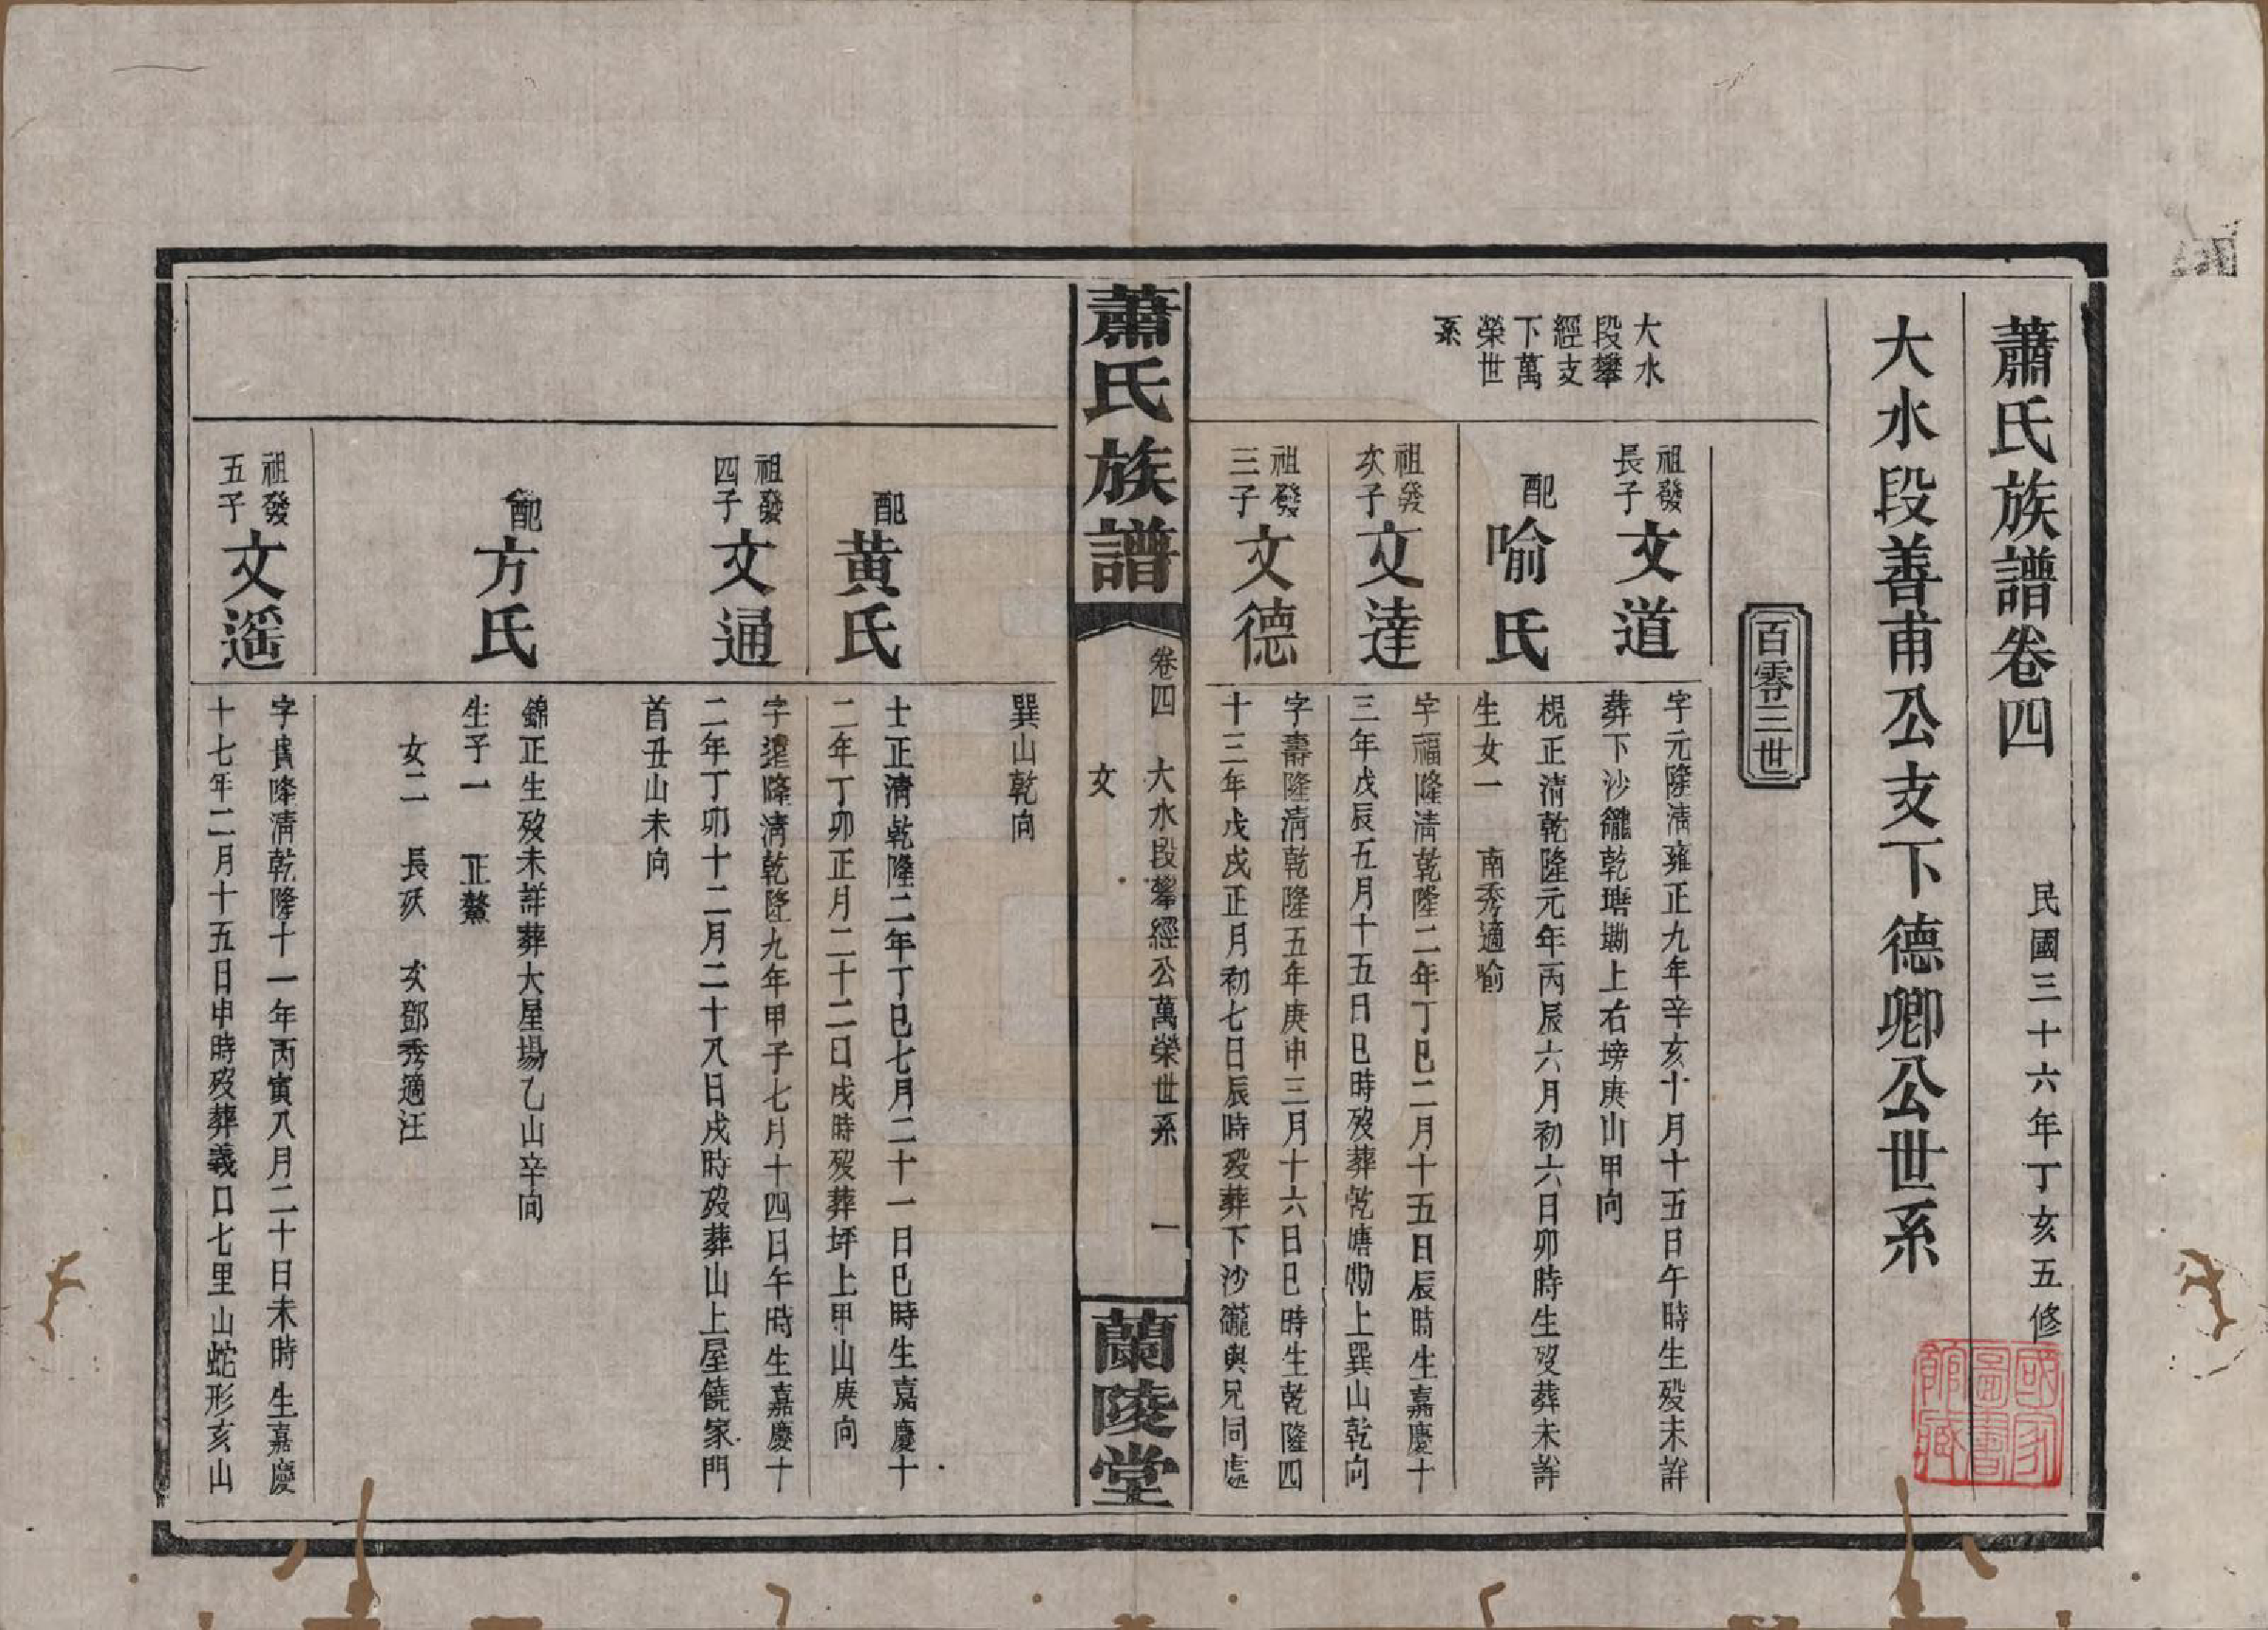 蕭氏族譜卷四
民國三十六年丁亥五修
國家圖書館藏
大水段善甫公支下德卿公世系
百零三世
大水
段攀
經支
下萬
榮世
系
祖發
長子
文道
字元隆清雍正九年辛亥十月十五日午時生歿未詳
葬下沙龍乾塘墈上右塝庚山甲向
配
喻氏
棍正清乾隆元年丙辰六月初六日卯時生歿葬未詳
生女一 南秀適喻
祖發
次子
文達
字福隆清乾隆二年丁巳二月十五日辰時生嘉慶十
三年戊辰五月十五日巳時歿葬乾塘墈上巽山乾向
祖發
三子
文德
字壽隆清乾隆五年庚申三月十六日巳時生乾隆四
十三年戊戌正月初七日辰時歿葬下沙龍與兄同處
蕭氏族譜
卷四 大水段攀經公萬榮世系 一
文
蘭陵堂
巽山乾向
配
黄氏
士正清乾隆二年丁巳七月二十一日巳時生嘉慶十
二年丁卯正月二十二日戌時歿葬坪上甲山庚向
祖發
四子
文通
字遠隆清乾隆九年甲子七月十四日午時生嘉慶十
二年丁卯十二月二十八日戌時歿葬山上屋饒家門
首丑山未向
配
方氏
錦正生歿未詳葬大屋場乙山辛向
生子一 正鰲
女二 長殀 次鄧秀適汪
祖發
五子
文遥
字貴隆清乾隆十一年丙寅八月二十日未時生嘉慶
十七年二月十五日申時歿葬義口七里山蛇形亥山